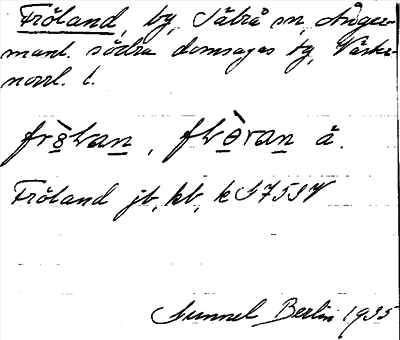 Fröland, by, Säbrå sn, Ånger-
manl. södra domsagas tg, Väster-
norrl. l.
frö̀lan, flö̀ran å.
Fröland jb, kb, k S7517
Gunnel Berlin 1935